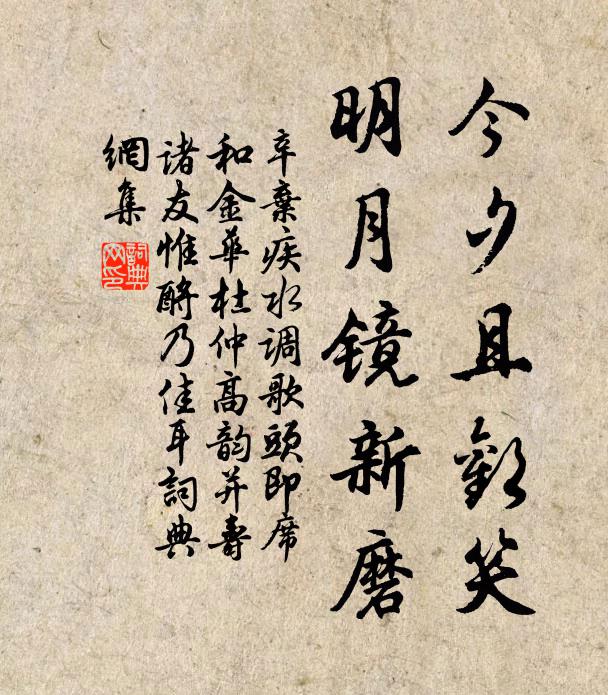 今夕且歡笑
明月鏡新磨
辛棄疾水調歌頭即席
和金華杜仲高韻并壽
諸友惟釂乃佳耳詞典
網集
詞典
网印